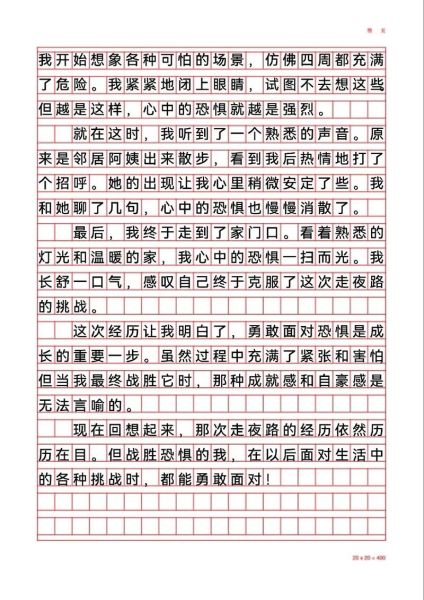 我开始想象各种可怕的场景，仿佛四周都充满
了危险。我紧紧地闭上眼睛，试图不去想这些，
但越是这样，心中的恐惧就越是强烈。
就在这时，我听到了一个熟悉的声音。原
来是邻居阿姨出来散步，看到我后热情地打了
个招呼。她的出现让我心里稍微安定了些。我
和她聊了几句，心中的恐惧也慢慢消散了。
最后，我终于走到了家门口。看着熟悉的
灯光和温暖的家，我心中的恐惧一扫而光。我
长舒一口气，感叹自己终于克服了这次走夜路
的挑战。
这次经历让我明白了，勇敢面对恐惧是成
长的重要一步。虽然过程中充满了紧张和害怕
但当我最终战胜它时，那种成就感和自豪感是
无法言喻的。
现在回想起来，那次走夜路的经历依然历
历在目。但战胜恐惧的我，在以后面对生活中
的各种挑战时，都能勇敢面对！
20 x 20 = 400